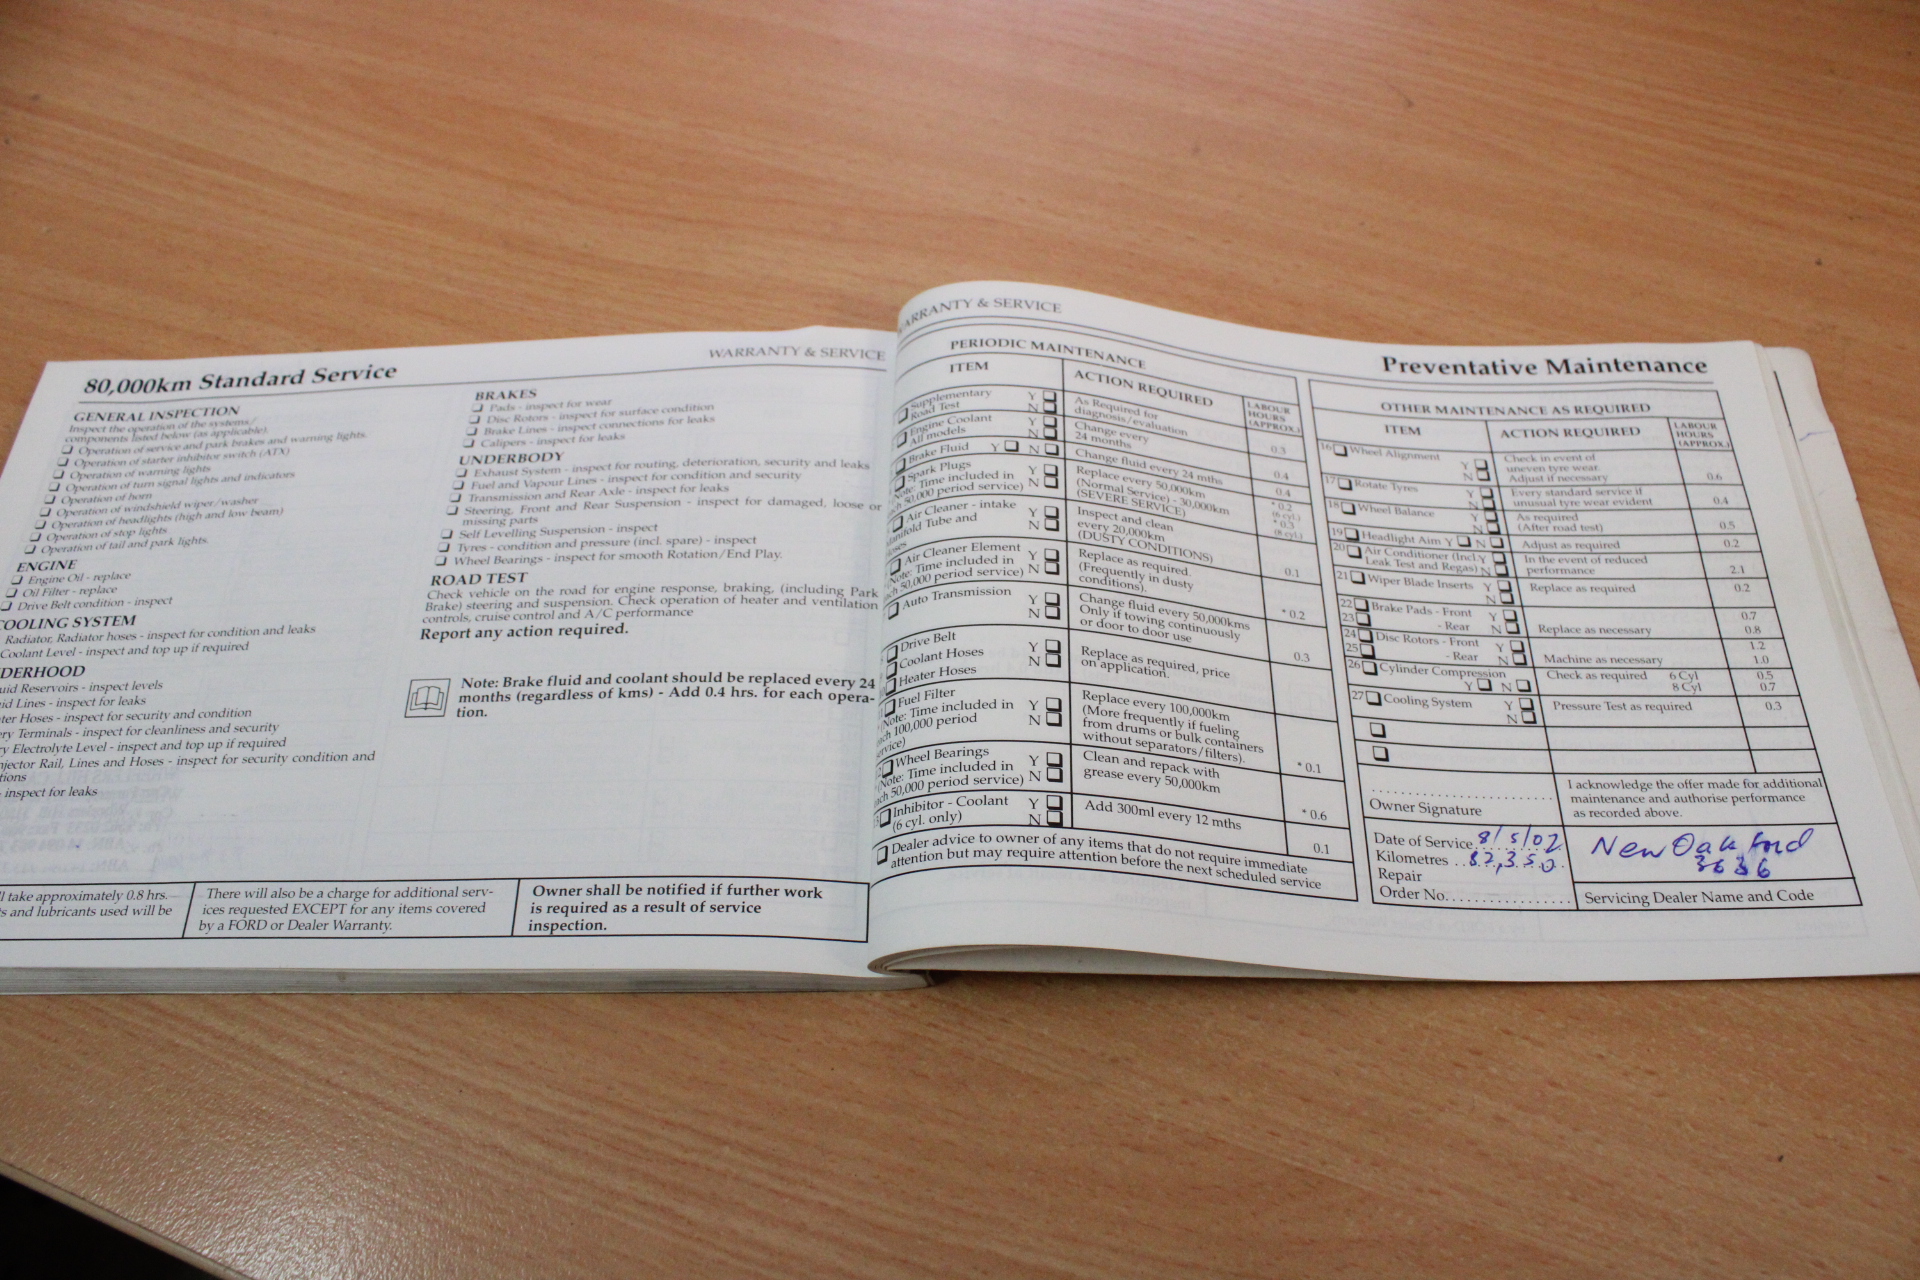 WARRANTY & SERVICE
80,000km Standard Service
GENERAL INSPECTION
Inspect the operation of the systems/
components listed below (as applicable).
❏ Operation of service and park brakes and warning lights.
❏ Operation of starter inhibitor switch (ATX)
❏ Operation of warning lights
❏ Operation of turn signal lights and indicators
❏ Operation of horn
❏ Operation of windshield wiper/washer
❏ Operation of headlights (high and low beam)
❏ Operation of stop lights
❏ Operation of tail and park lights.
ENGINE
❏ Engine Oil - replace
❏ Oil Filter - replace
❏ Drive Belt condition - inspect
COOLING SYSTEM
Radiator, Radiator hoses - inspect for condition and leaks
Coolant Level - inspect and top up if required
DERHOOD
uid Reservoirs - inspect levels
id Lines - inspect for leaks
ter Hoses - inspect for security and condition
ery Terminals - inspect for cleanliness and security
ry Electrolyte Level - inspect and top up if required
njector Rail, Lines and Hoses - inspect for security condition and
tions
- inspect for leaks
BRAKES
❏ Pads - inspect for wear
❏ Disc Rotors - inspect for surface condition
❏ Brake Lines - inspect connections for leaks
❏ Calipers - inspect for leaks
UNDERBODY
❏ Exhaust System - inspect for routing, deterioration, security and leaks
❏ Fuel and Vapour Lines - inspect for condition and security
❏ Transmission and Rear Axle - inspect for leaks
❏ Steering, Front and Rear Suspension - inspect for damaged, loose or
missing parts
❏ Self Levelling Suspension - inspect
❏ Tyres - condition and pressure (incl. spare) - inspect
❏ Wheel Bearings - inspect for smooth Rotation/End Play.
ROAD TEST
Check vehicle on the road for engine response, braking, (including Park
Brake) steering and suspension. Check operation of heater and ventilation
controls, cruise control and A/C performance
Report any action required.
Note: Brake fluid and coolant should be replaced every 24
months (regardless of kms) - Add 0.4 hrs. for each opera-
tion.
ll take approximately 0.8 hrs.
s and lubricants used will be
There will also be a charge for additional serv-
ices requested EXCEPT for any items covered
by a FORD or Dealer Warranty.
Owner shall be notified if further work
is required as a result of service
inspection.
WARRANTY & SERVICE
Preventative Maintenance
PERIODIC MAINTENANCE
ITEM ACTION REQUIRED LABOUR HOURS (APPROX.)
❏ Supplementary Y ❏ As Required for
Road Test N ❏ diagnosis/evaluation 0.3
❏ Engine Coolant Y ❏ Change every
All models N ❏ 24 months 0.4
❏ Brake Fluid Y ❏ N ❏ Change fluid every 24 mths 0.4
❏ Spark Plugs Y ❏ Replace every 50,000km * 0.2
Note: Time included in N ❏ (Normal Service) - 30,000km (6 cyl.)
ch 50,000 period service) (SEVERE SERVICE) * 0.3
(8 cyl.)
❏ Air Cleaner - intake Y ❏ Inspect and clean
anifold Tube and N ❏ every 20,000km
oses (DUSTY CONDITIONS) 0.1
❏ Air Cleaner Element Y ❏ Replace as required
Note: Time included in N ❏ (Frequently in dusty
ch 50,000 period service) conditions). * 0.2
❏ Auto Transmission Y ❏ Change fluid every 50,000kms
N ❏ Only if towing continuously
or door to door use 0.3
❏ Drive Belt Y ❏ Replace as required, price
❏ Coolant Hoses N ❏ on application.
❏ Heater Hoses
❏ Fuel Filter Y ❏ Replace every 100,000km
Note: Time included in N ❏ (More frequently if fueling
ch 100,000 period from drums or bulk containers
ervice) without separators/filters). * 0.1
❏ Wheel Bearings Y ❏ Clean and repack with
(Note: Time included in N ❏ grease every 50,000km
ach 50,000 period service) * 0.6
❏ Inhibitor - Coolant Y ❏ Add 300ml every 12 mths
(6 cyl. only) N ❏ 0.1
❏ Dealer advice to owner of any items that do not require immediate
attention but may require attention before the next scheduled service
OTHER MAINTENANCE AS REQUIRED
ITEM ACTION REQUIRED LABOUR HOURS (APPROX.)
16 ❏ Wheel Alignment Y ❏ Check in event of
N ❏ uneven tyre wear.
Adjust if necessary 0.6
17 ❏ Rotate Tyres Y ❏ Every standard service if
N ❏ unusual tyre wear evident 0.4
18 ❏ Wheel Balance Y ❏ As required
N ❏ (After road test) 0.5
19 ❏ Headlight Aim Y ❏ N ❏ Adjust as required 0.2
20 ❏ Air Conditioner (Incl. Y ❏ In the event of reduced
Leak Test and Regas) N ❏ performance 2.1
21 ❏ Wiper Blade Inserts Y ❏ Replace as required 0.2
N ❏
22 ❏ Brake Pads - Front Y ❏ 0.7
23 ❏ - Rear N ❏ Replace as necessary 0.8
24 ❏ Disc Rotors - Front Y ❏ 1.2
25 ❏ - Rear N ❏ Machine as necessary 1.0
26 ❏ Cylinder Compression Check as required 6 Cyl 0.5
Y ❏ N ❏ 8 Cyl 0.7
27 ❏ Cooling System Y ❏ Pressure Test as required 0.3
N ❏
❏
❏
Owner Signature
I acknowledge the offer made for additional
maintenance and authorise performance
as recorded above.
Date of Service 8/5/02
Kilometres 82,350
Repair
Order No.
New Oak Ford
3636
Servicing Dealer Name and Code